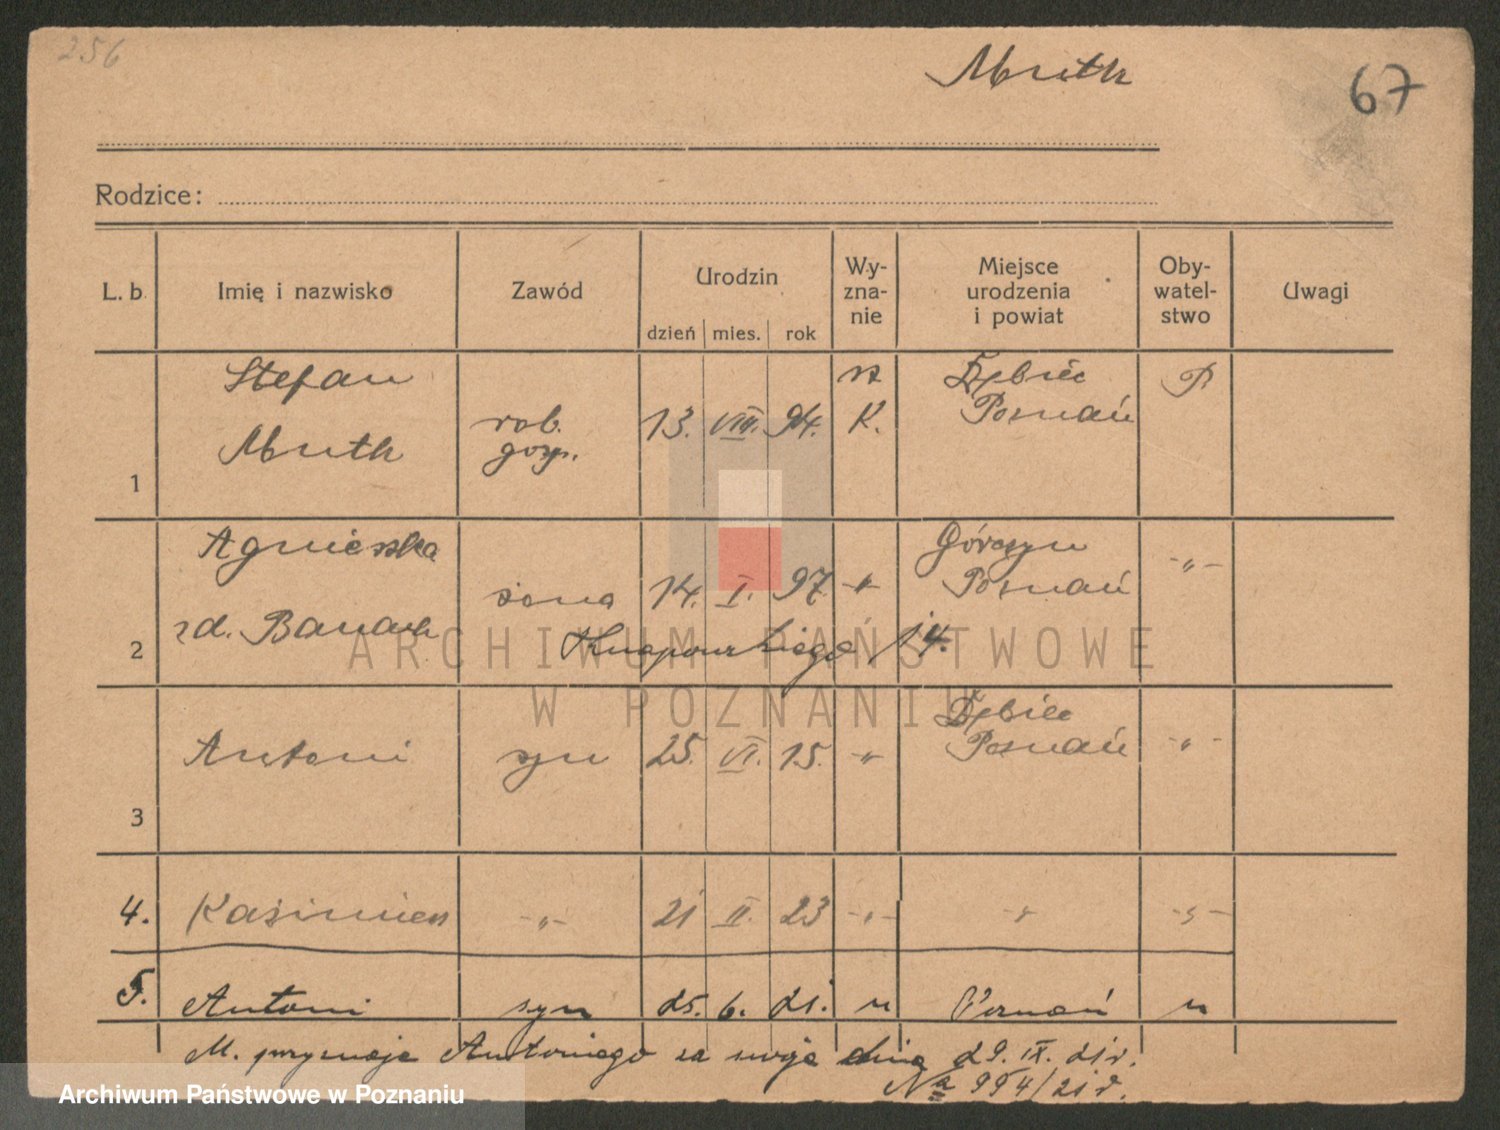 256
Muth
67
Rodzice:
L. b. Imię i nazwisko Zawód Urodzin dzień mies. rok Wy-zna-nie Miejsce urodzenia i powiat Oby-watel-stwo Uwagi
1 Stefan Muth rob. gosp. 13. VIII. 94. rz K. Dębiec Poznań P.
2 Agnieszka zd. Banach żona 14. I. 97. -"- Górczyn Poznań -"-
Knapowskiego 14.
3 Antoni syn 25. VI. 15. -"- Dębiec Poznań -"-
4. Kazimierz -"- 21 II. 23 -"- -"- -"-
5. Antoni syn 25. 6. 21. " Poznań "
M. przyznaje Antoniego za swoje dnia 29. IX. 21 r.
No 994/21 r.
ARCHIWUM PAŃSTWOWE
W POZNANIU
Archiwum Państwowe w Poznaniu